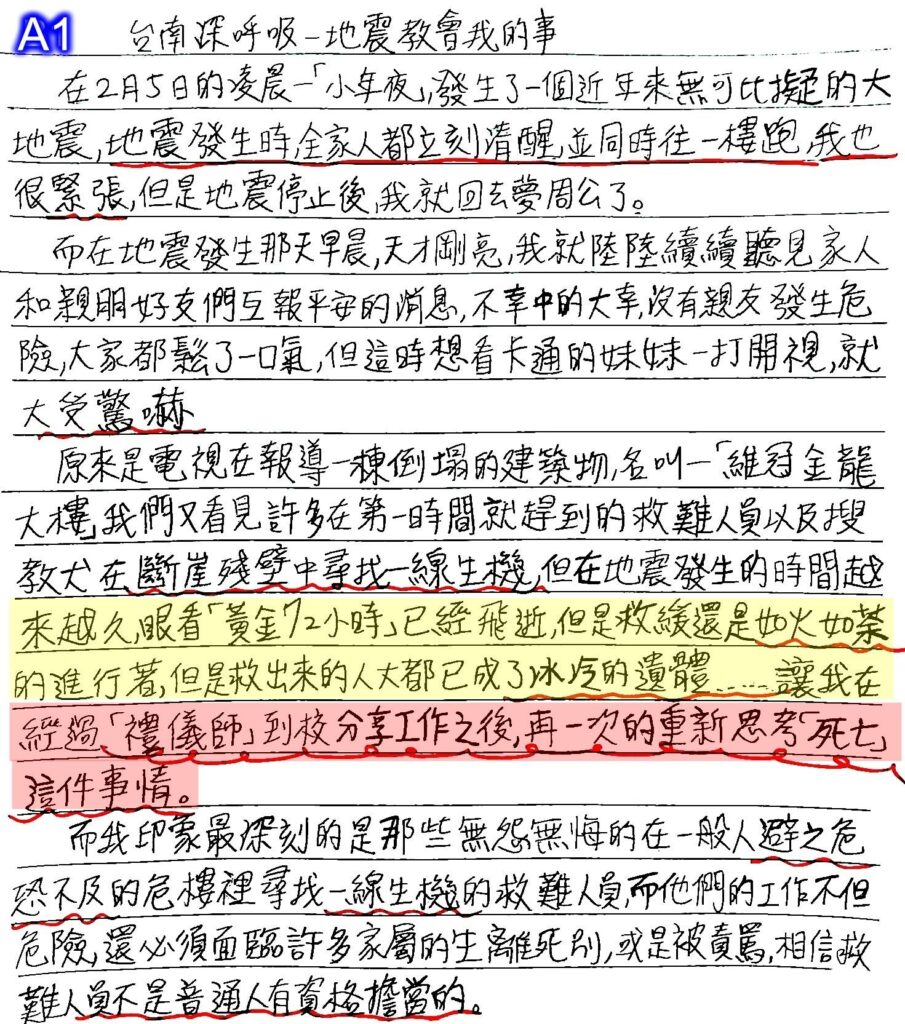 A1
台南深呼吸-地震教會我的事
在2月5日的凌晨-「小年夜」,發生了一個近年來無可比擬的大
地震,地震發生時,全家人都立刻清醒,並同時往一樓跑,我也
很緊張,但是地震停止後,我就回去夢周公了。
而在地震發生那天早晨,天才剛亮,我就陸陸續續聽見家人
和親朋好友們互報平安的消息,不幸中的大幸,沒有親友發生危
險,大家都鬆了一口氣,但這時想看卡通的妹妹一打開視,就
大受驚嚇
原來是電視在報導一棟倒塌的建築物,名叫-「維冠金龍
大樓」我們又看見許多在第一時間就趕到的救難人員以及搜
教犬在斷崖殘壁中尋找一線生機,但在地震發生的時間越
來越久,眼看「黃金72小時」已經飛逝,但是救緩還是如火如荼
的進行著,但是救出來的人大都已成了冰冷的遺體……讓我在
經過「禮儀師」到校分享工作之後,再一次的重新思考「死亡」
這件事情。
而我印象最深刻的是那些無怨無悔的在一般人避之危
恐不及的危樓裡尋找一線生機的救難人員,而他們的工作不但
危險,還必須面臨許多家屬的生離死別,或是被責罵,相信救
難人員不是普通人有資格擔當的。